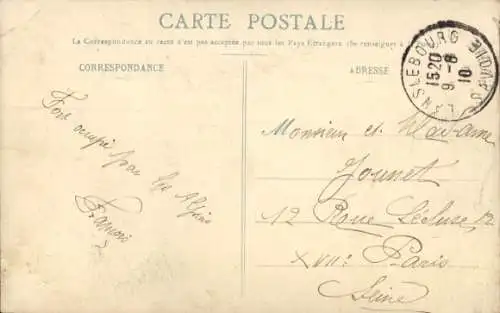 CARTE POSTALE
La Correspondance au recto n'est pas acceptée par tous les Pays Étrangers (Se renseigner à
CORRESPONDANCE
ADRESSE
LANSLEBOURG
15 20
9 - 8
10
SAVOIE
Fort occupé par les Alpins
François
Monsieur et Madame
Jounet
12 Rue Lécluse 12
XVII: Paris
Seine